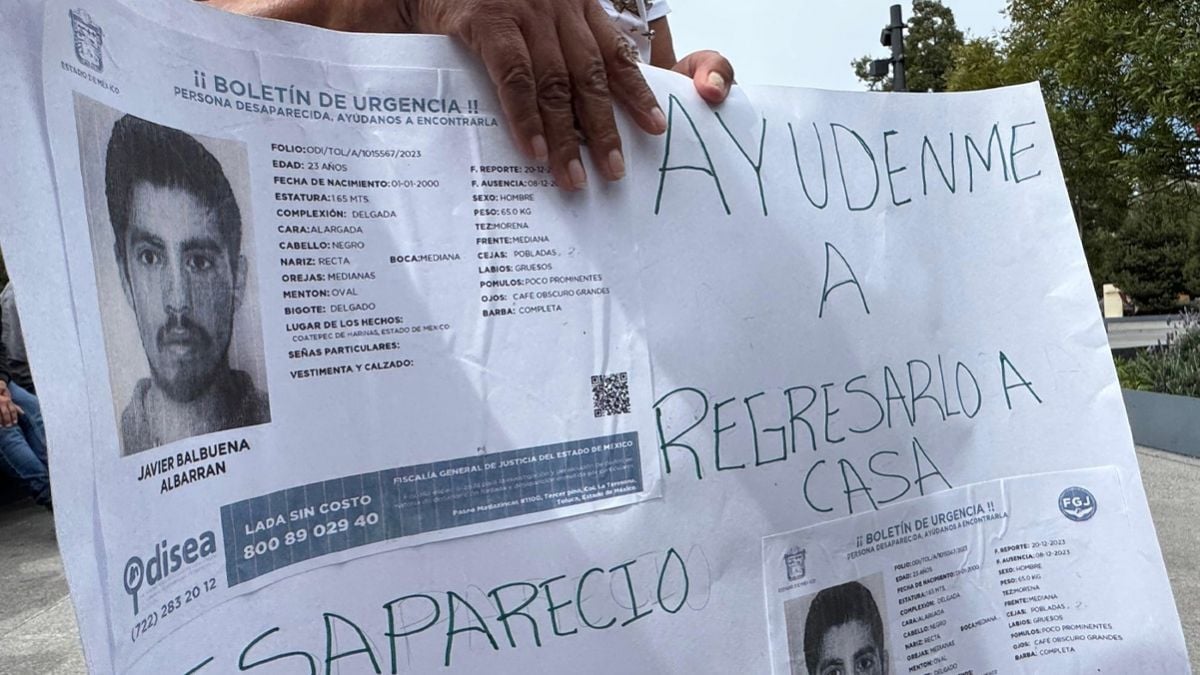 ESTADO DE MÉXICO
¡¡ BOLETÍN DE URGENCIA !!
PERSONA DESAPARECIDA, AYÚDANOS A ENCONTRARLA
FOLIO:ODI/TOL/A/1015567/2023
EDAD: 23 AÑOS
FECHA DE NACIMIENTO:01-01-2000
ESTATURA:1.65 MTS
COMPLEXIÓN: DELGADA
CARA:ALARGADA
CABELLO: NEGRO
NARIZ: RECTA
BOCA:MEDIANA
OREJAS: MEDIANAS
MENTON: OVAL
BIGOTE: DELGADO
LUGAR DE LOS HECHOS:
COATEPEC DE HARINAS, ESTADO DE MEXICO
SEÑAS PARTICULARES:
VESTIMENTA Y CALZADO:
F. REPORTE: 20-12-2
F. AUSENCIA: 08-12-2
SEXO: HOMBRE
PESO: 65.0 KG
TEZ:MORENA
FRENTE:MEDIANA
CEJAS: POBLADAS
LABIOS: GRUESOS
POMULOS: POCO PROMINENTES
OJOS: CAFE OBSCURO GRANDES
BARBA: COMPLETA
JAVIER BALBUENA
ALBARRAN
Odisea
(722) 283 20 12
LADA SIN COSTO
800 89 029 40
FISCALÍA GENERAL DE JUSTICIA DEL ESTADO DE MÉXICO
Paseo Matlazíncas #1100, Tercer piso, Col. La Teresona,
Toluca, Estado de México.
AYUDENME
A
REGRESARLO A
CASA
SAPARECIO
ESTADO DE MÉXICO
FGJ
¡¡ BOLETÍN DE URGENCIA !!
PERSONA DESAPARECIDA, AYÚDANOS A ENCONTRARLA
FOLIO:ODI/TOL/A/1015567/2023
EDAD: 23 AÑOS
FECHA DE NACIMIENTO:01-01-2000
ESTATURA:1.65 MTS
COMPLEXIÓN: DELGADA
CARA:ALARGADA
CABELLO: NEGRO
NARIZ: RECTA
BOCA:MEDIANA
OREJAS: MEDIANAS
MENTON: OVAL
BIGOTE: DELGADO
F. REPORTE: 20-12-2023
F. AUSENCIA: 08-12-2023
SEXO: HOMBRE
PESO: 65.0 KG
TEZ:MORENA
FRENTE:MEDIANA
CEJAS: POBLADAS
LABIOS: GRUESOS
POMULOS: POCO PROMINENTES
OJOS: CAFE OBSCURO GRANDES
BARBA: COMPLETA